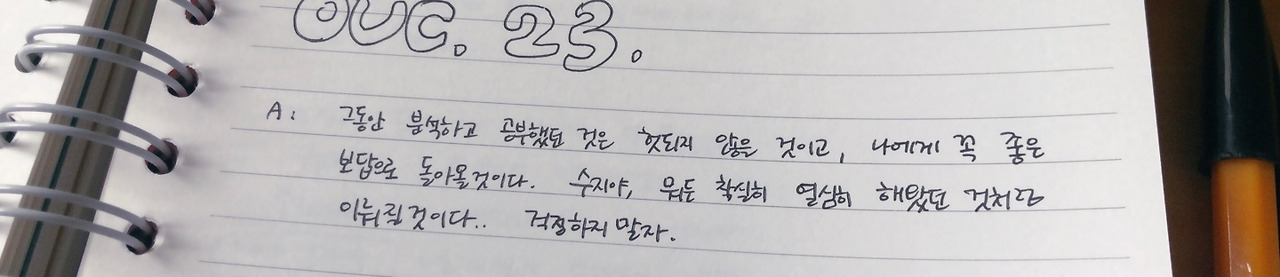 DEC. 23.
A: 그동안 분석하고 공부했던 것은 헛되지 않을 것이고, 나에게 꼭 좋은
보답으로 돌아올것이다. 수지야, 뭐든 착실히 열심히 해왔던 것처럼
이뤄질 것이다.. 걱정하지 말자.